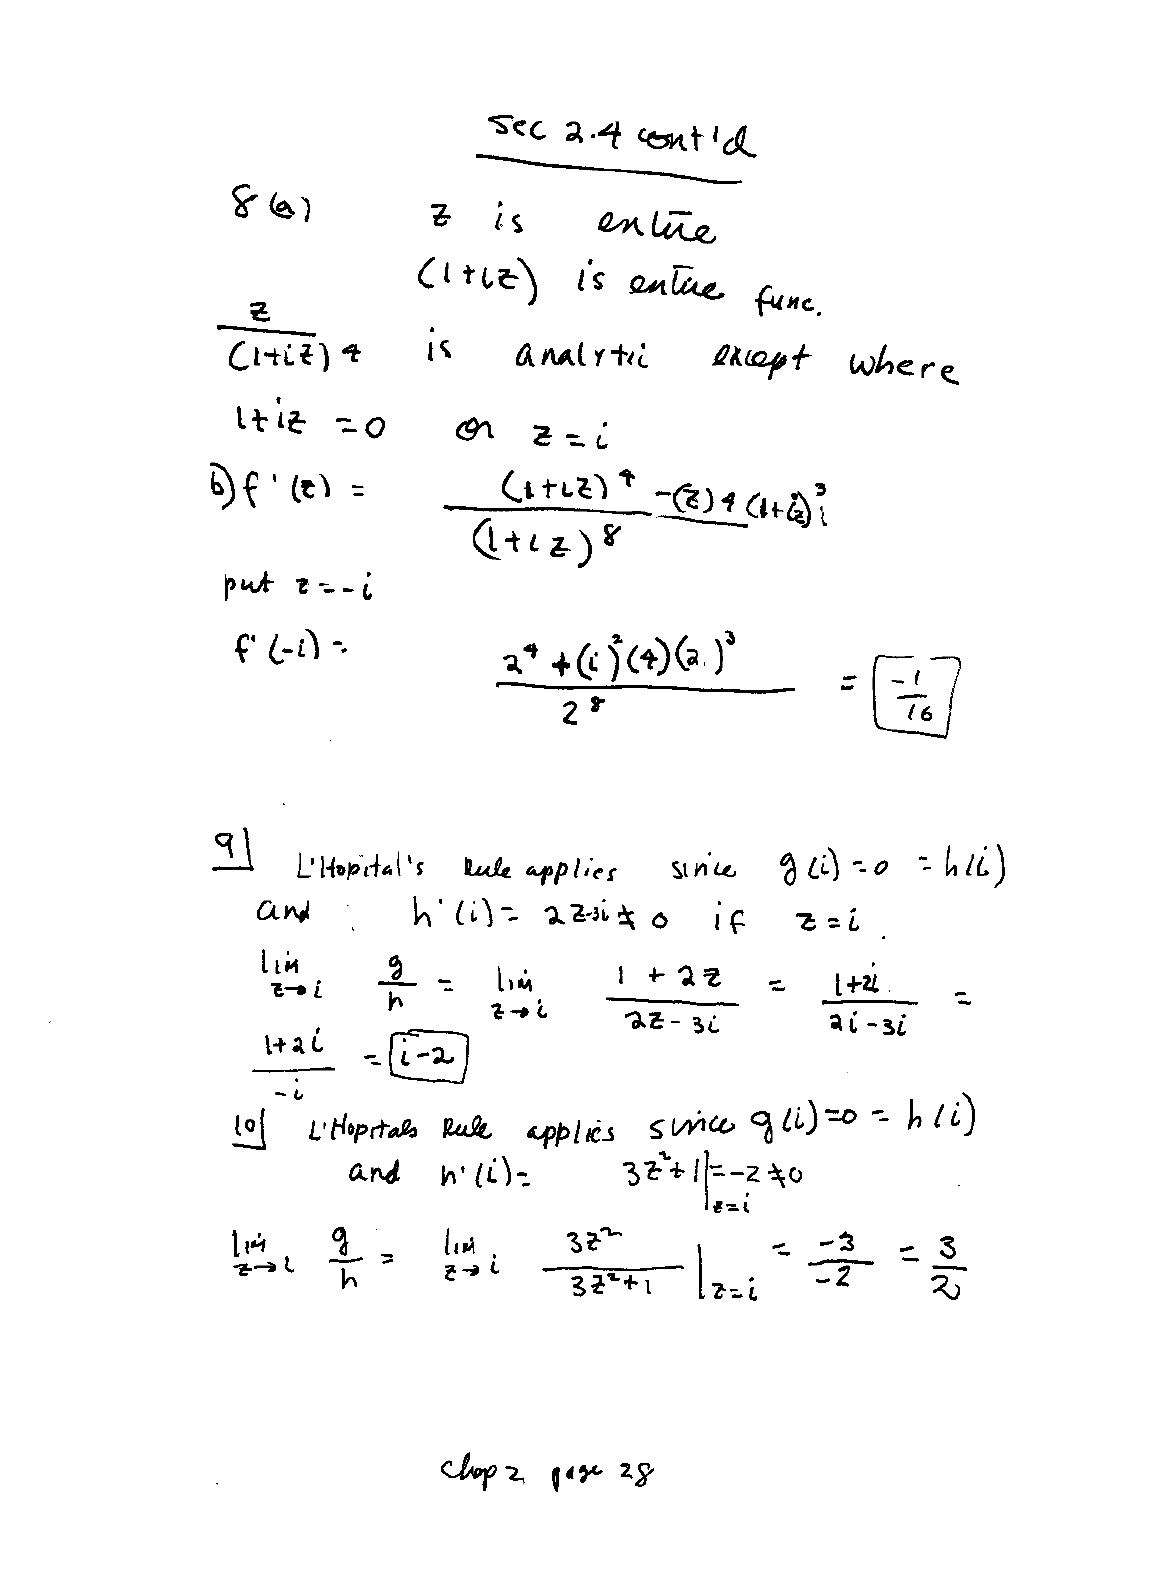 sec 2.4 cont'd
8(a) z is entire
(1+iz) is entire func.
z/(1+iz)4 is analytic except where
1+iz =0 or z=i
b) f'(z) = ((1+iz)^4 -(z)4(1+iz)^3 i)/(1+iz)^8
put z=-i
f'(-i) = (2^4 +(i)^2(4)(2.)^3)/2^8 = -1/16
9 L'Hopital's Rule applies since g(i)=0 =h(i)
and h'(i)= 2z-3i≠0 if z=i
lim z→i g/h = lim z→i (1+2z)/(2z-3i) = (1+2i)/(2i-3i) =
(1+2i)/-i = i-2
10 L'Hopitals Rule applies since g(i)=0 = h(i)
and h'(i)= 3z^2+1|z=i =-2≠0
lim z→i g/h = lim z→i 3z^2/(3z^2+1)|z=i = -3/-2 = 3/2
Chap 2 page 28